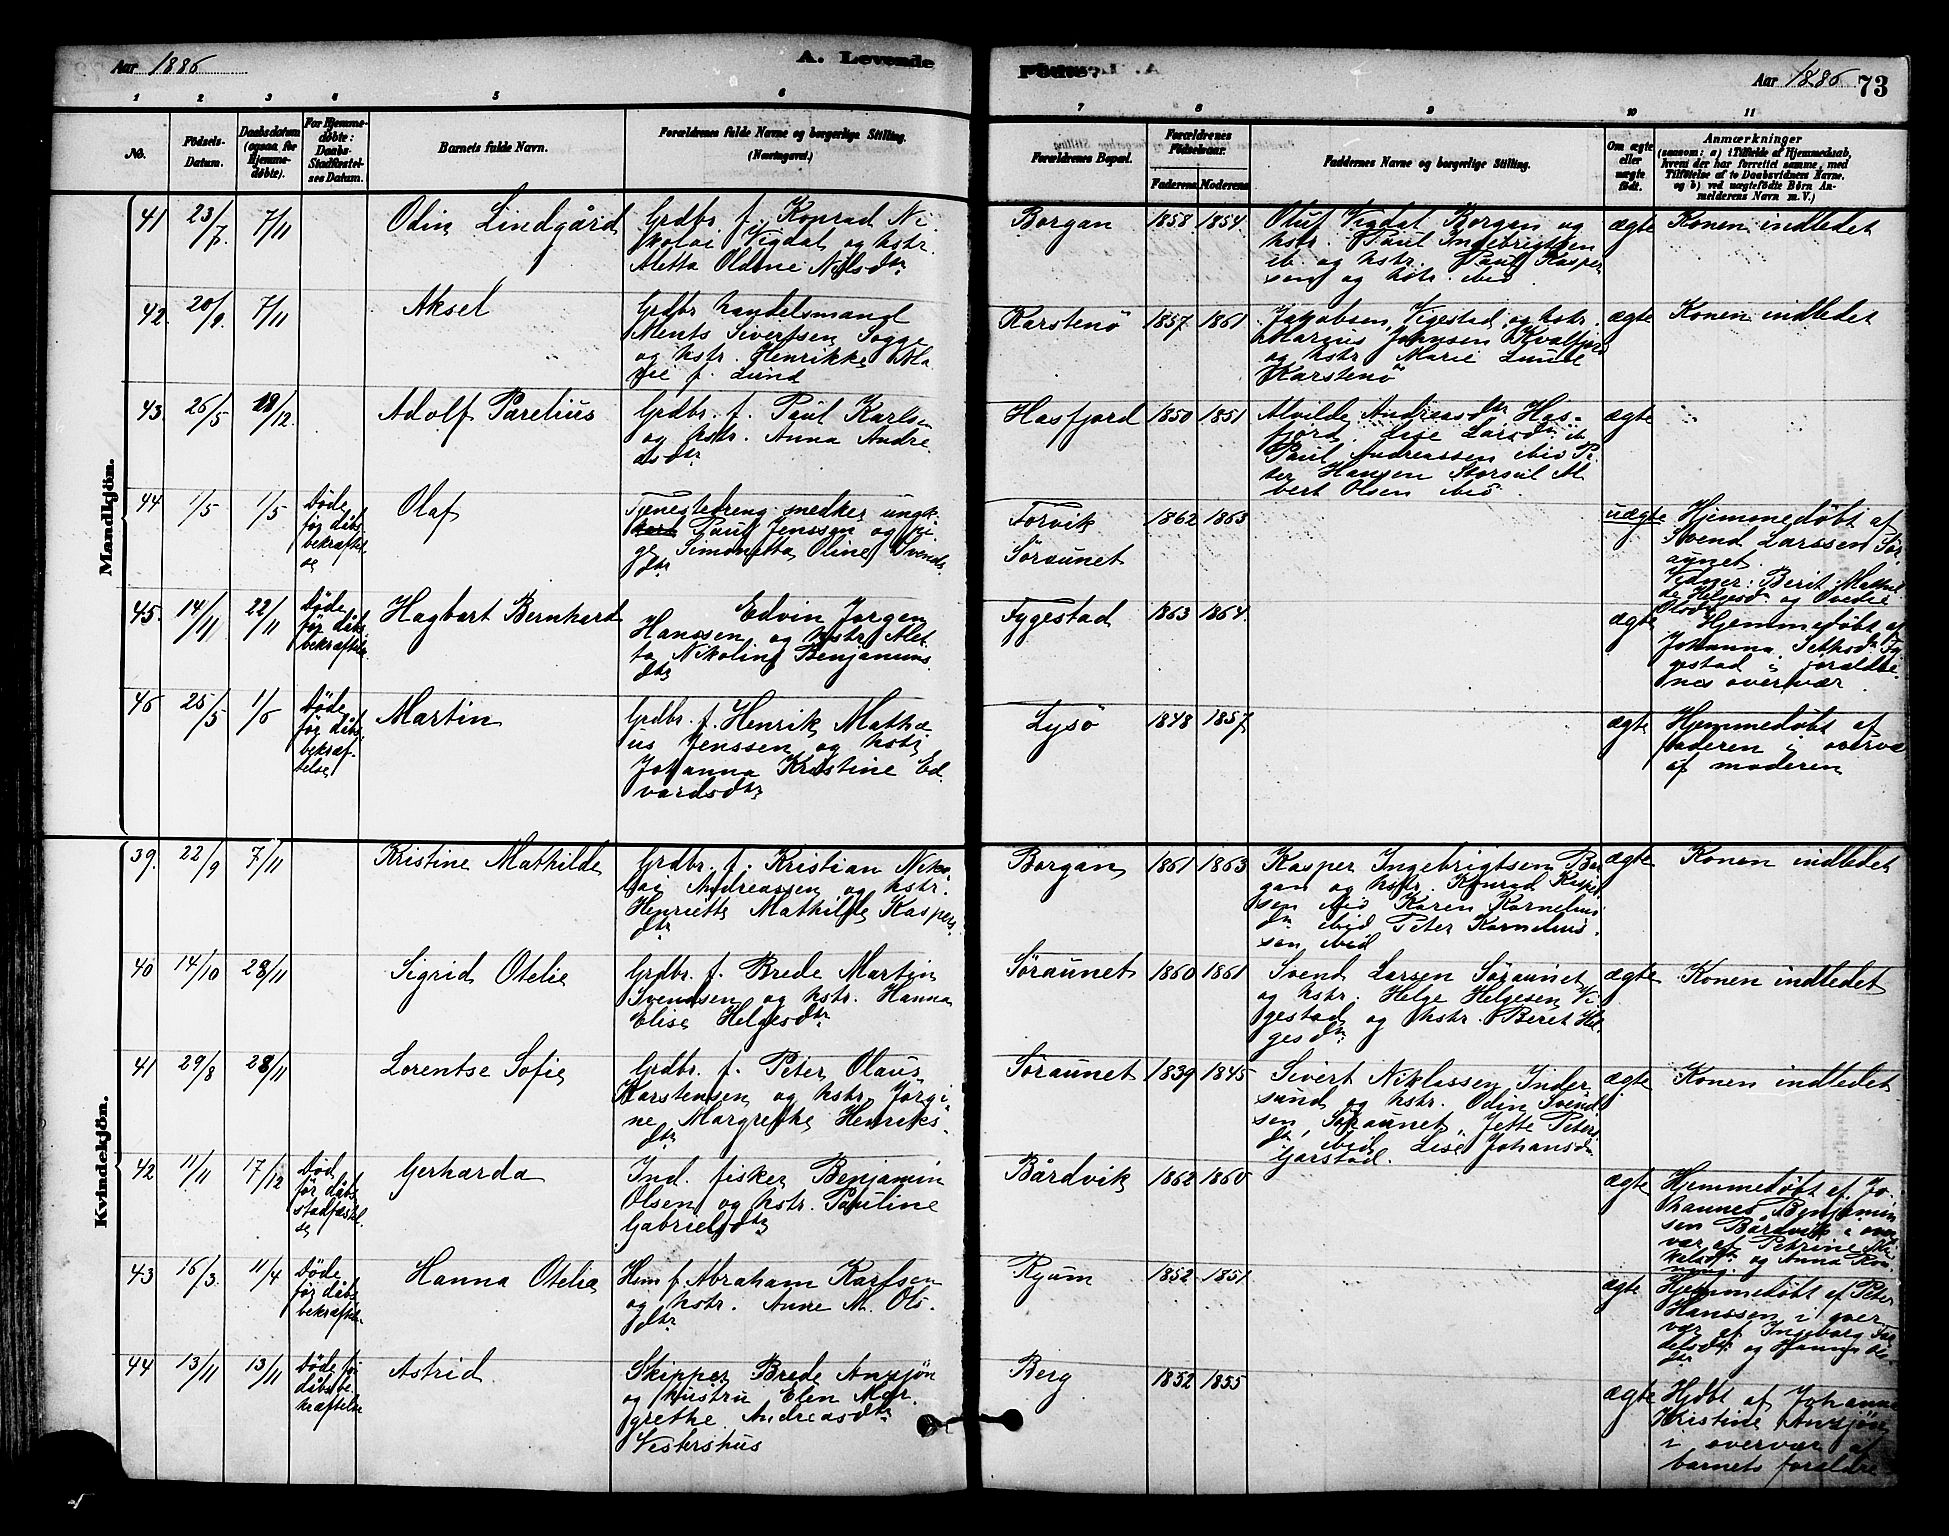 Aar 1886
A. Levende
Fødte.
Aar 1886
73
1 2 3 4 5 6 7 8 9 10 11
No.
Födsels-
Datum.
Daabsdatum
(ogsaa for
Hjemme-
døbte).
For Hjemme-
døbte:
Daabs-
Stadfæstel-
ses Datum.
Barnets fulde Navn.
Forældrenes fulde Navne og borgerlige Stilling.
Forældrenes Bopæl.
Forældrenes
Fødselsaar.
Faderens. Moderens.
Faddernes Navne og borgerlige Stilling.
Om ægte
eller
uægte
født.
Anmærkninger
(saasom: a) i Tilfælde af Hjemmedaab,
hvem der har forrettet samme, med
Tilføielse af to Daabsvidners Navne,
og b) ved uægtefødte Børn An-
melderens Navn m. V.)
Mandkjön.
41 23/7 7/11 Odin Lindgård
Grdbr. f. Konrad Ni-
kolai Vigdal og hstr.
Aletta Oldine Nilsdtr
Borgan 1858 1854
Oluf Vigdal Borgan og
hstr. Paul Indebrigtsen
ib og hstr. Paul Kasper
sen og hstr. ibid
ægte Konen indledet
42. 20/9. 7/11 Aksel
Grdbr handelsmand
Ments Sivertsen Sogge
og hstr. Henrikke Ma
rie f. Lund
Karstenö 1857 1861
Jakobsen Vigestad og hstr.
Marius Johnsen Kvalfjord
og hstr Marie Lunde
Karstenö
ægte Konen indledet
43. 26/5 18/12. Adolf Parelius
Grdbr. f. Paul Karlsen
og hstr. Anna Andre
asdtr
Hasfjord 1850 1851
Alvilde Andreasdtr Has-
fjord. Lise Larsdtr ib
Paul Andreassen ibid Pe
ter Hansen Storsul Al
bert Olsen ibid
ægte
44 1/5 1/5
Døde
før dåbs
bekræftel
se
Olaf
Tjenestedreng medker ungk.
Paul Jenssen og pi
ge Simonetta Oline Svends
dtr
Forvik
Söraunet
1862 1863
uægte
Hjemmedøbt af
Svend Larssen Sör
aunet.
Vidner: Berit Mathil
de Helgesdtr og Ovedie
Olsdtr
45. 14/11 22/11
Døde
før dåbs
bekræftelse
Hagbart Bernhard
Edvin Jørgen
Hanssen og hstr. Alet
ta Nikoline Benjamins
dtr
Fygestad 1863 1864.
ægte
Hjemmedøbt af
Johanna Sethsdtr Fy
gestad i forældre
nes overvær.
46 25/5 1/6
Døde
før dåbs
bekræf-
telse
Martin
Grdbr. f. Henrik Mathæ
us Jenssen og hstr
Johanna Kristine Ed
vardsdtr
Lysö 1848 1857
ægte
Hjemmedøbt af
faderen i overvær
af moderen
Kvindekjön.
39. 22/9 7/11 Kristine Mathilde
Grdbr. f. Kristian Niko
lai Andreassen og hstr.
Henriette Mathilde Kaspers
dtr
Borgan 1861 1863
Kasper Ingebrigtsen Bor
gan og hstr. Konrad Kasper
sen ibid Karen Kornelius
dtr ibid Peter Kornelius
sen ibid
ægte Konen indledet
40 14/10 28/11 Sigrid Otelie
Grdbr. f. Brede Martin
Svendsen og hstr. Hanna
Elise Helgesdtr
Söraunet 1860 1861
Svend Larsen Söraunet
og hstr. Helge Helgesen Vi
gestad og hstr. Beret Hel
gesdtr
ægte Konen indledet
41 29/8 28/11 Lorentse Sofie
Grdbr. f. Peter Olaus
Karstensen og hstr. Jørgi
ne Margrethe Henriks
dtr
Söraunet 1839 1845
Sivert Niklassen Inder
sund og hstr. Odin Svend
sen Söraunet, Jette Peters
dtr ibid. Lise Johansdtr
Garstad.
ægte Konen indledet
42 11/11 17/12
Død
før dåbs
stadfæstel
se
Gerharda
Ind. fisker Benjamin
Olsen og hstr. Pauline
Gabrielsdtr
Bårdvik 1862 1860
ægte
Hjemmedøbt af Jo
hannes Benjamin
sen Bårdvik i over
vær af Petrine Mi
kalsdtr og Anna
43 16/3. 11/4
Døde
før dåbs
bekræftel.
Hanna Otelia
Hmm f. Abraham Karlsen
og hstr. Anne M. Ols.
dtr
Ryum 1852 1851
ægte
Hjemmedøbt af Peter
Hanssen i over
vær af Ingeborg
og Hanna
44 13/11 13/11
Døde før
dåbsbe
kræftelse
Astrid
Skipper Brede Anzjön
og hustru Elen Mar
grethe Andreasdtr
Vestershus
Berg 1852 1855
ægte
Hjdbt af Johanna
Kristine Anzjön
i overvær af
barnets forældre